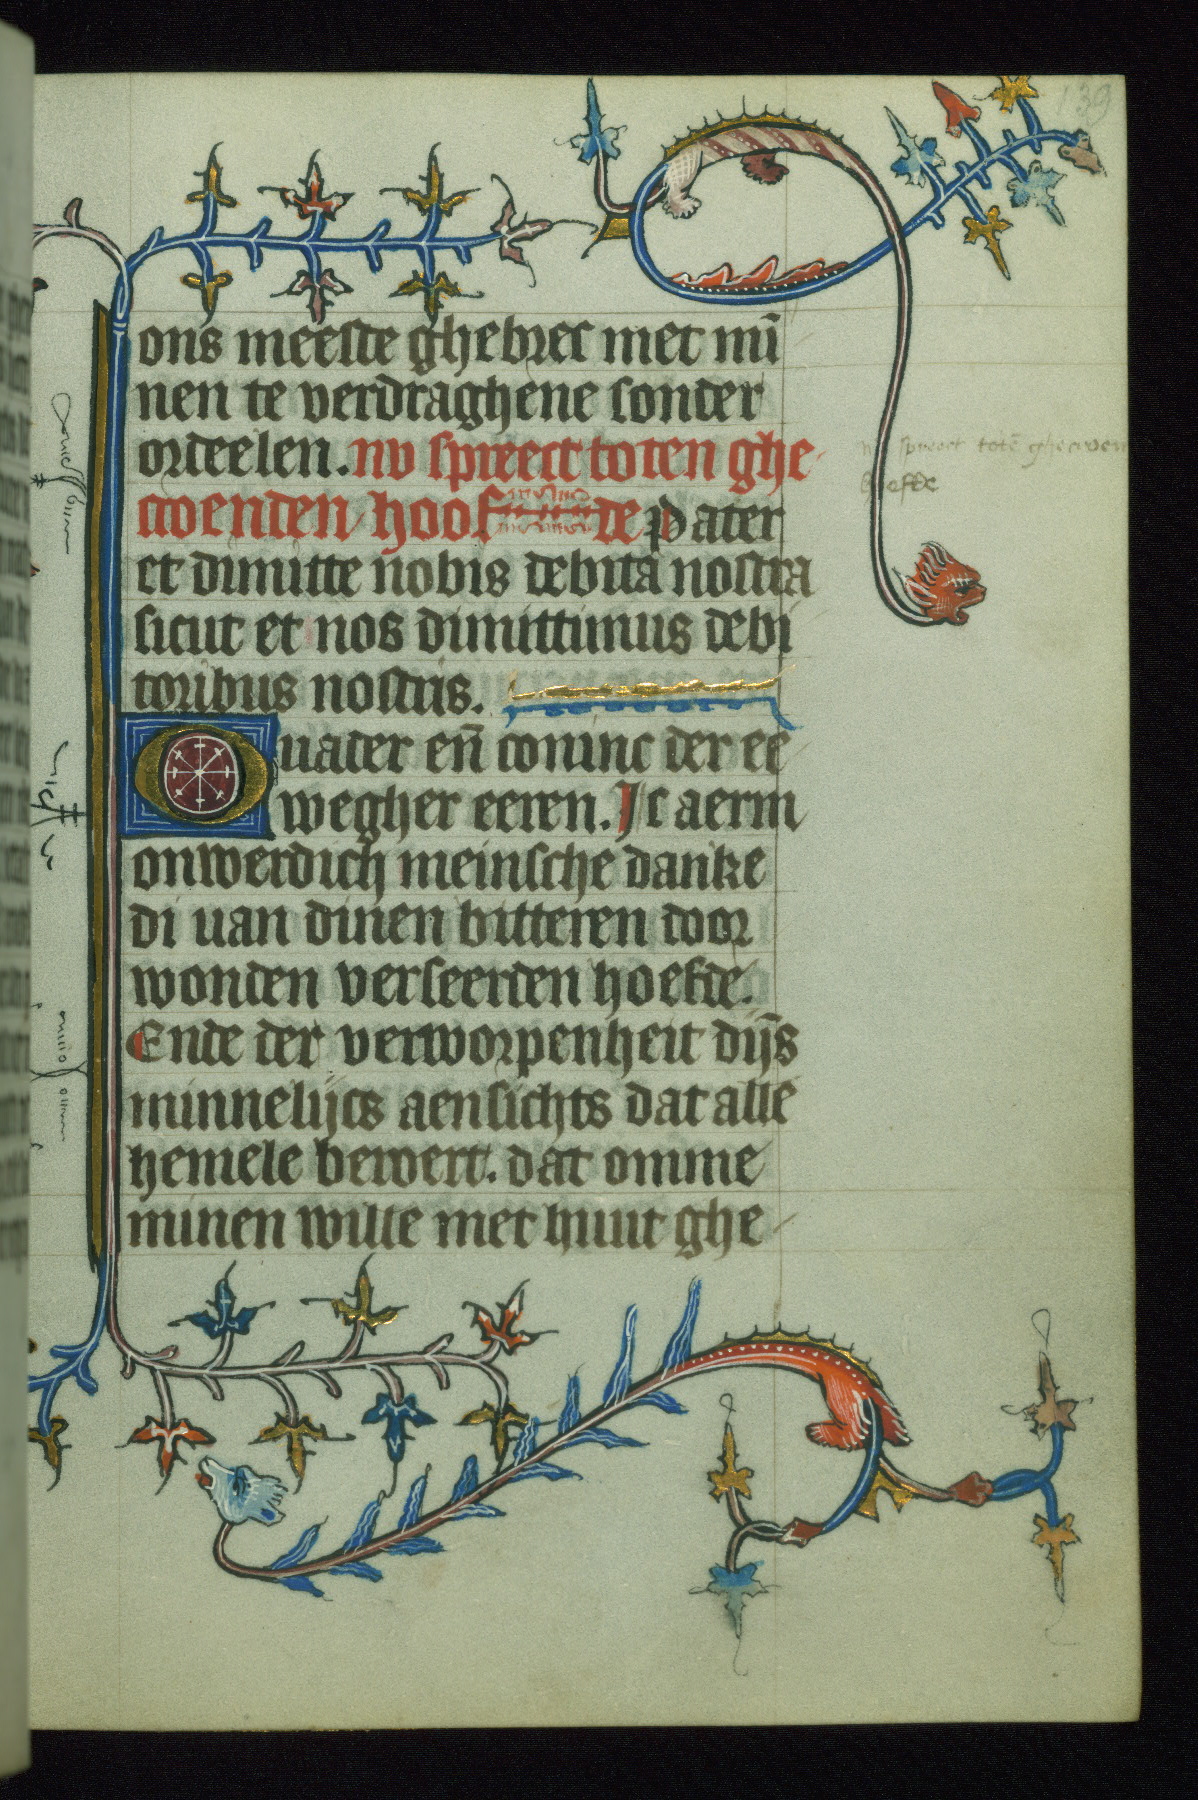 139
ons meeste ghebrec met mī
nen te verdraghene sonder
ordeelen. nv spreect toten ghe
croenden hoofde Pater
et dimitte nobis debita nostra
sicut et nos dimittimus debi
toribus nostris.
O uader eñ coninc der ee
wegher eeren. Ic aerm
onwerdich meinsche danke
di uan dinen bitteren door
wonden verseerden hoefde.
Ende der verworpenheit dijs
minnelijcs aensichts dat alle
hemele bewert. dat omme
minen wille met huut ghe
nv spreect totē ghecroenden
hoefde